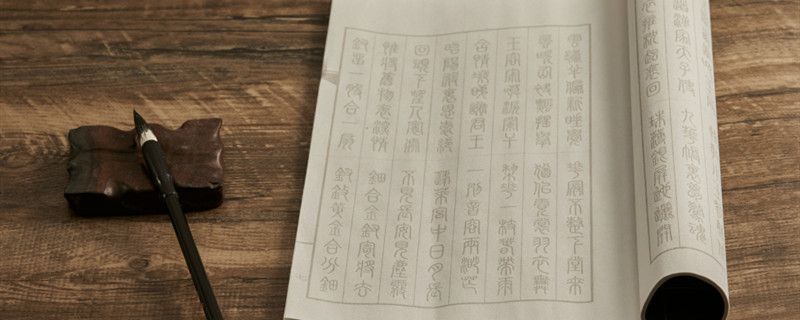 漢家天子使 九華帳裏夢魂驚
推枕起裴回 珠箔銀屏邐迤開
雲鬢半偏新睡覺 花冠不整下堂來
風吹仙袂飄飄舉 猶似霓裳羽衣舞
玉容寂寞淚闌干 梨花一枝春帶雨
含情凝睇謝君王 一別音容兩渺茫
昭陽殿裏恩愛絕 蓬萊宮中日月長
回頭下望人寰處 不見長安見塵霧
惟將舊物表深情 鈿合金釵寄將去
釵留一股合一扇 釵擘黃金合分鈿